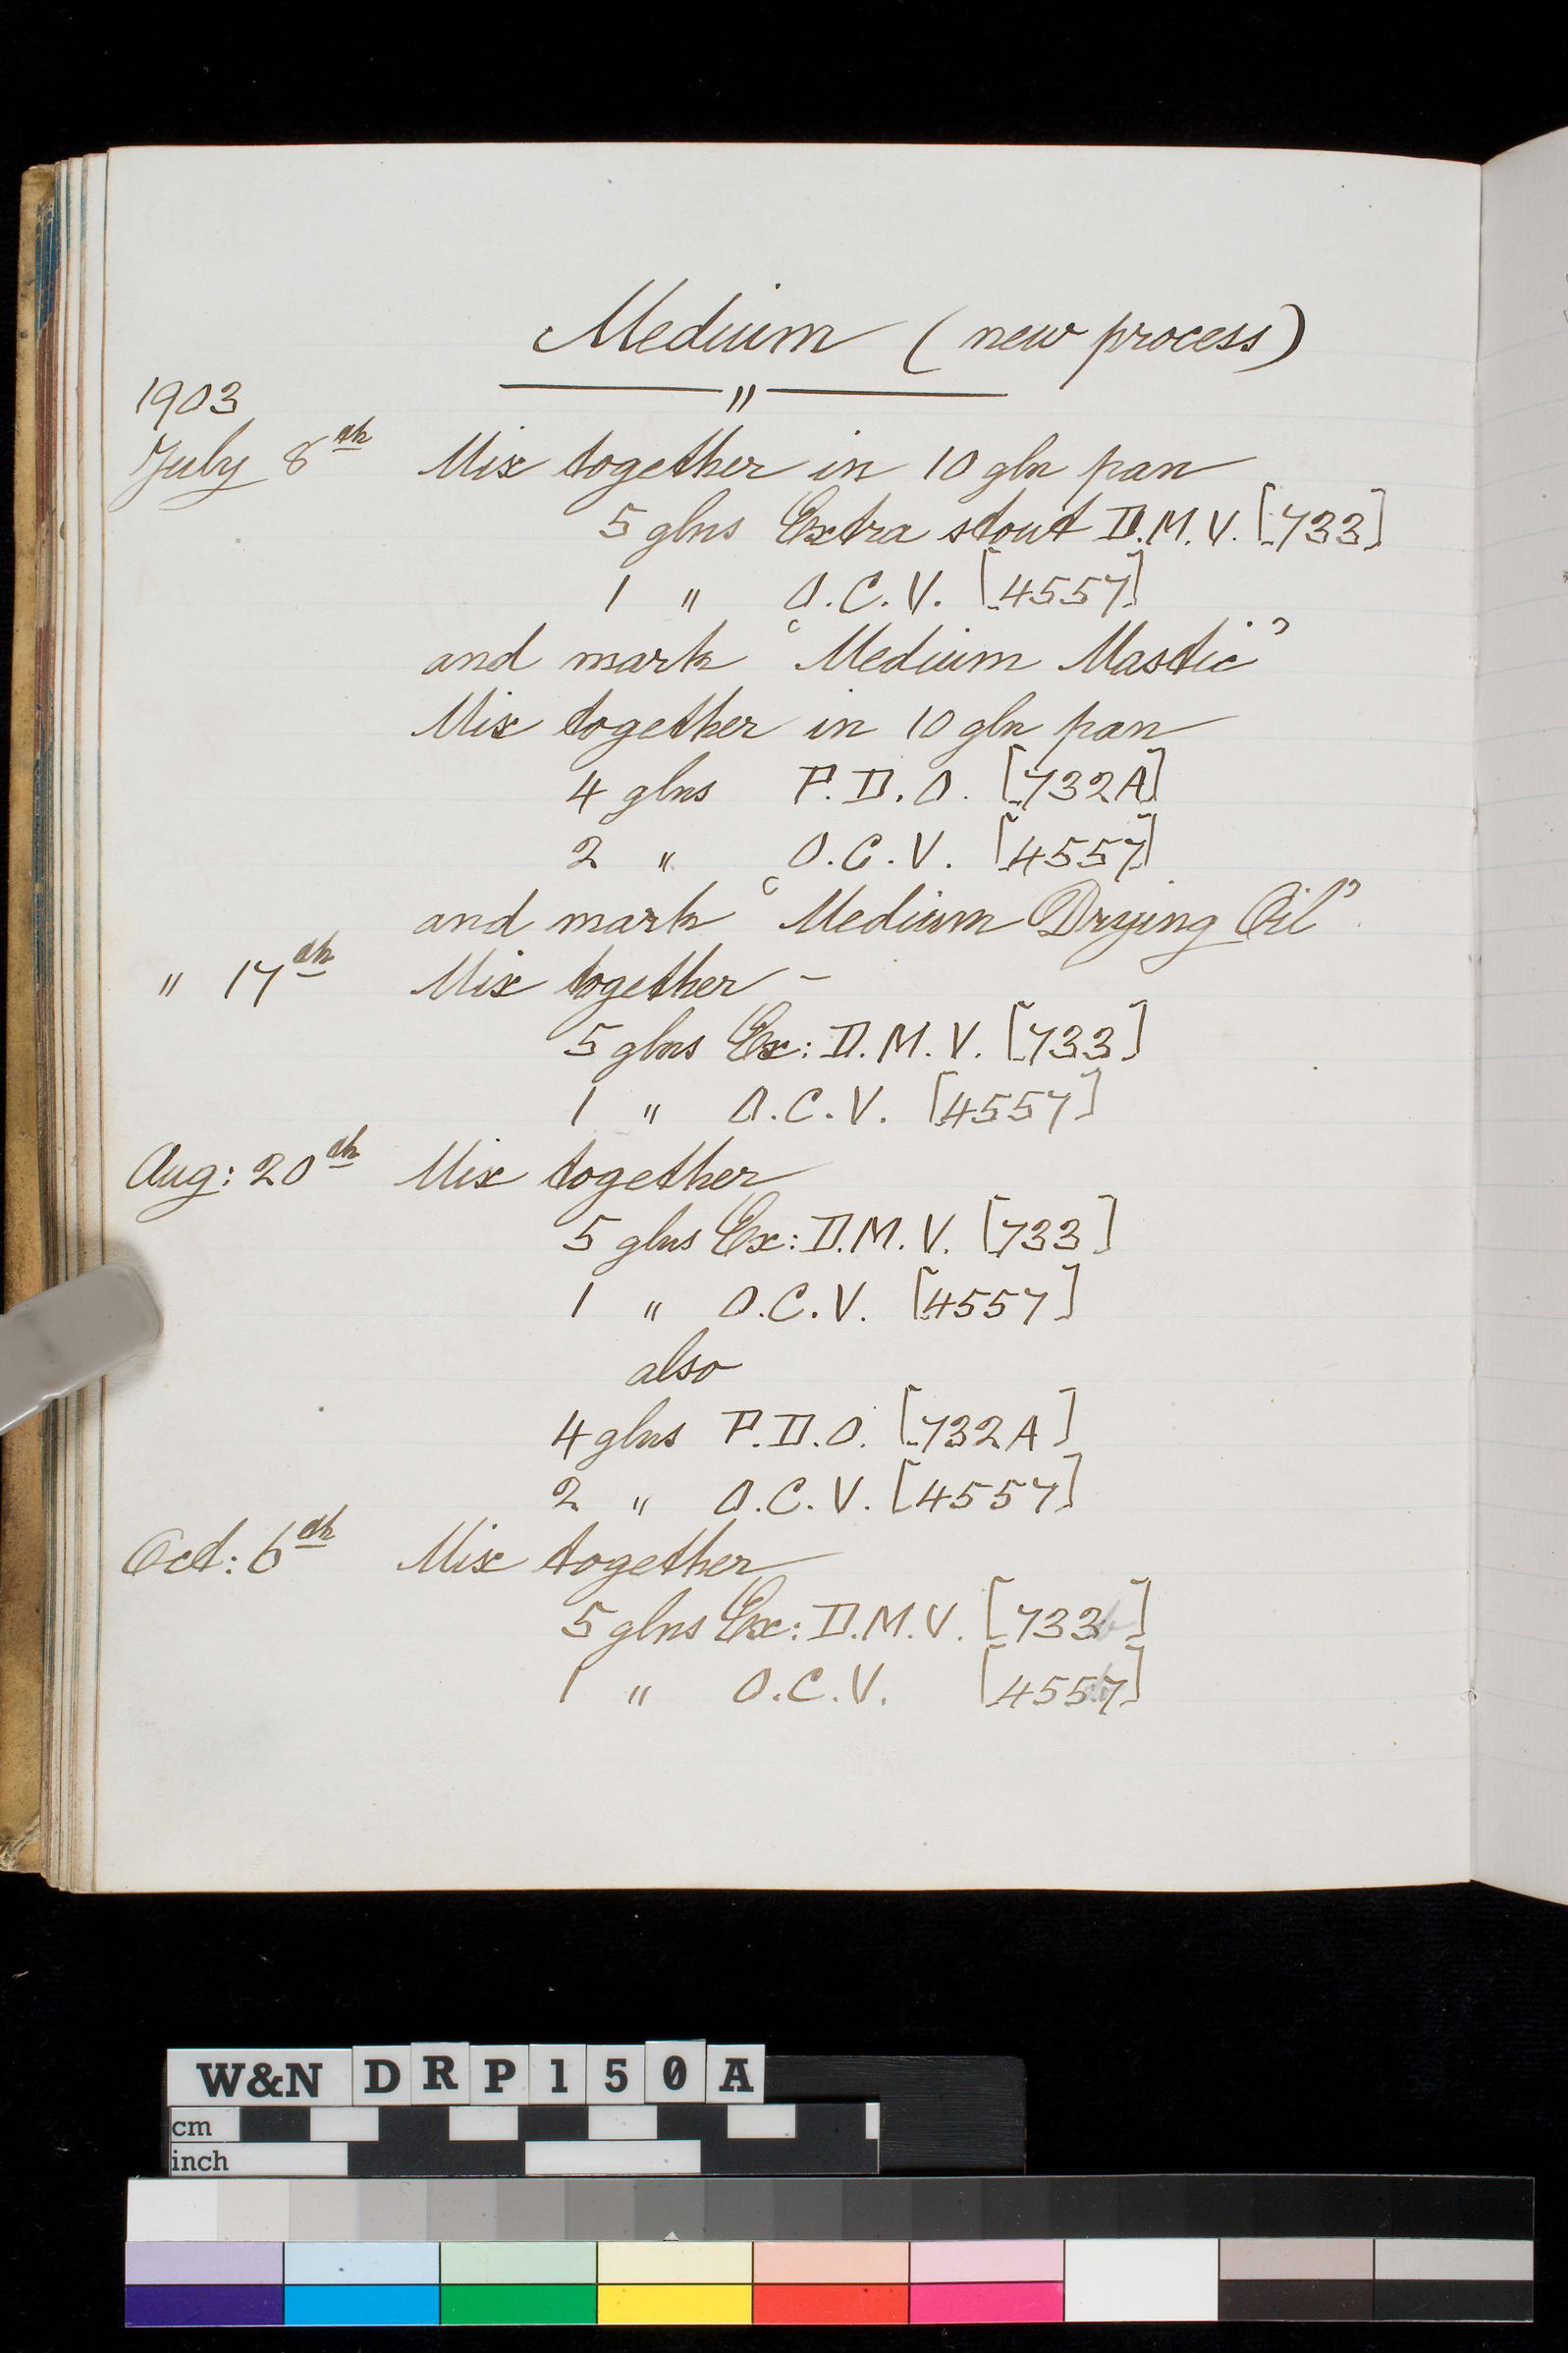 Medium (new process)
"
1903
July 8th Mix together in 10 gln pan
5 glns Extra stout D.M.V. [733]
1 " O.C.V. [4557]
and mark "Medium Mastic"
Mix together in 10 gln pan
4 glns P.D.O. [732A]
2 " O.C.V. [4557]
and mark "Medium Drying Oil"
" 17th Mix together –
5 glns Ex: D.M.V. [733]
1 " O.C.V. [4557]
Aug: 20th Mix together
5 glns Ex: D.M.V. [733]
1 " O.C.V. [4557]
also
4 glns P.D.O. [732A]
2 " O.C.V. [4557]
Oct: 6th Mix together
5 glns Ex: D.M.V. [733]
1 " O.C.V. [4557]
W&N DRP150A
cm
inch